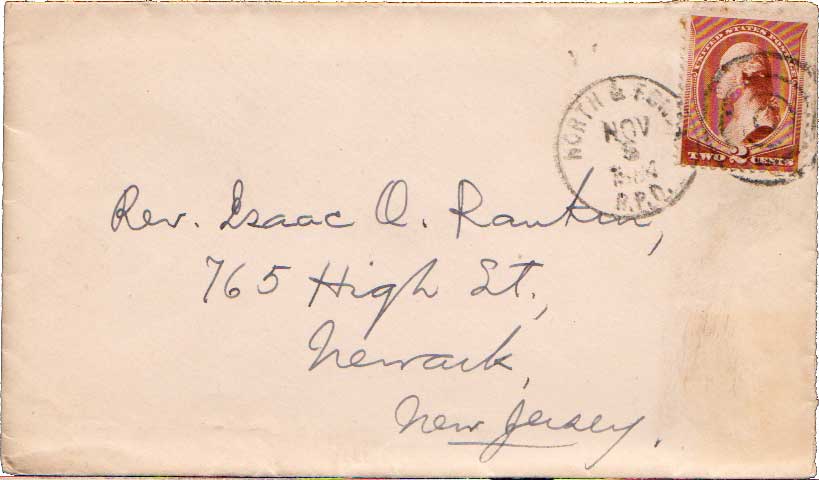 UNITED STATES POSTAGE
TWO 2 CENTS
NORTH &
NOV
R.P.O.
Rev. Isaac O. Rankin,
765 High St.,
Newark,
New Jersey.